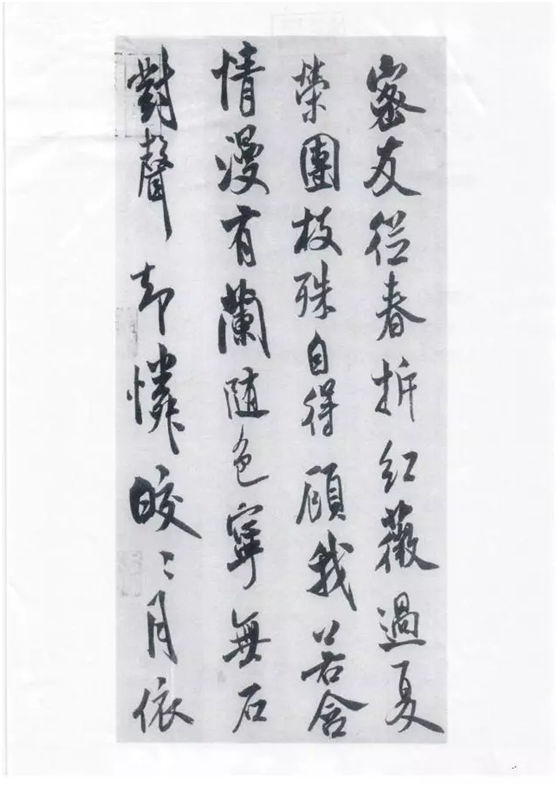 密友従春拆紅薇過夏
榮團枝殊自得顧我若含
情漫有蘭随色寧無石
對聲却憐皎〻月依